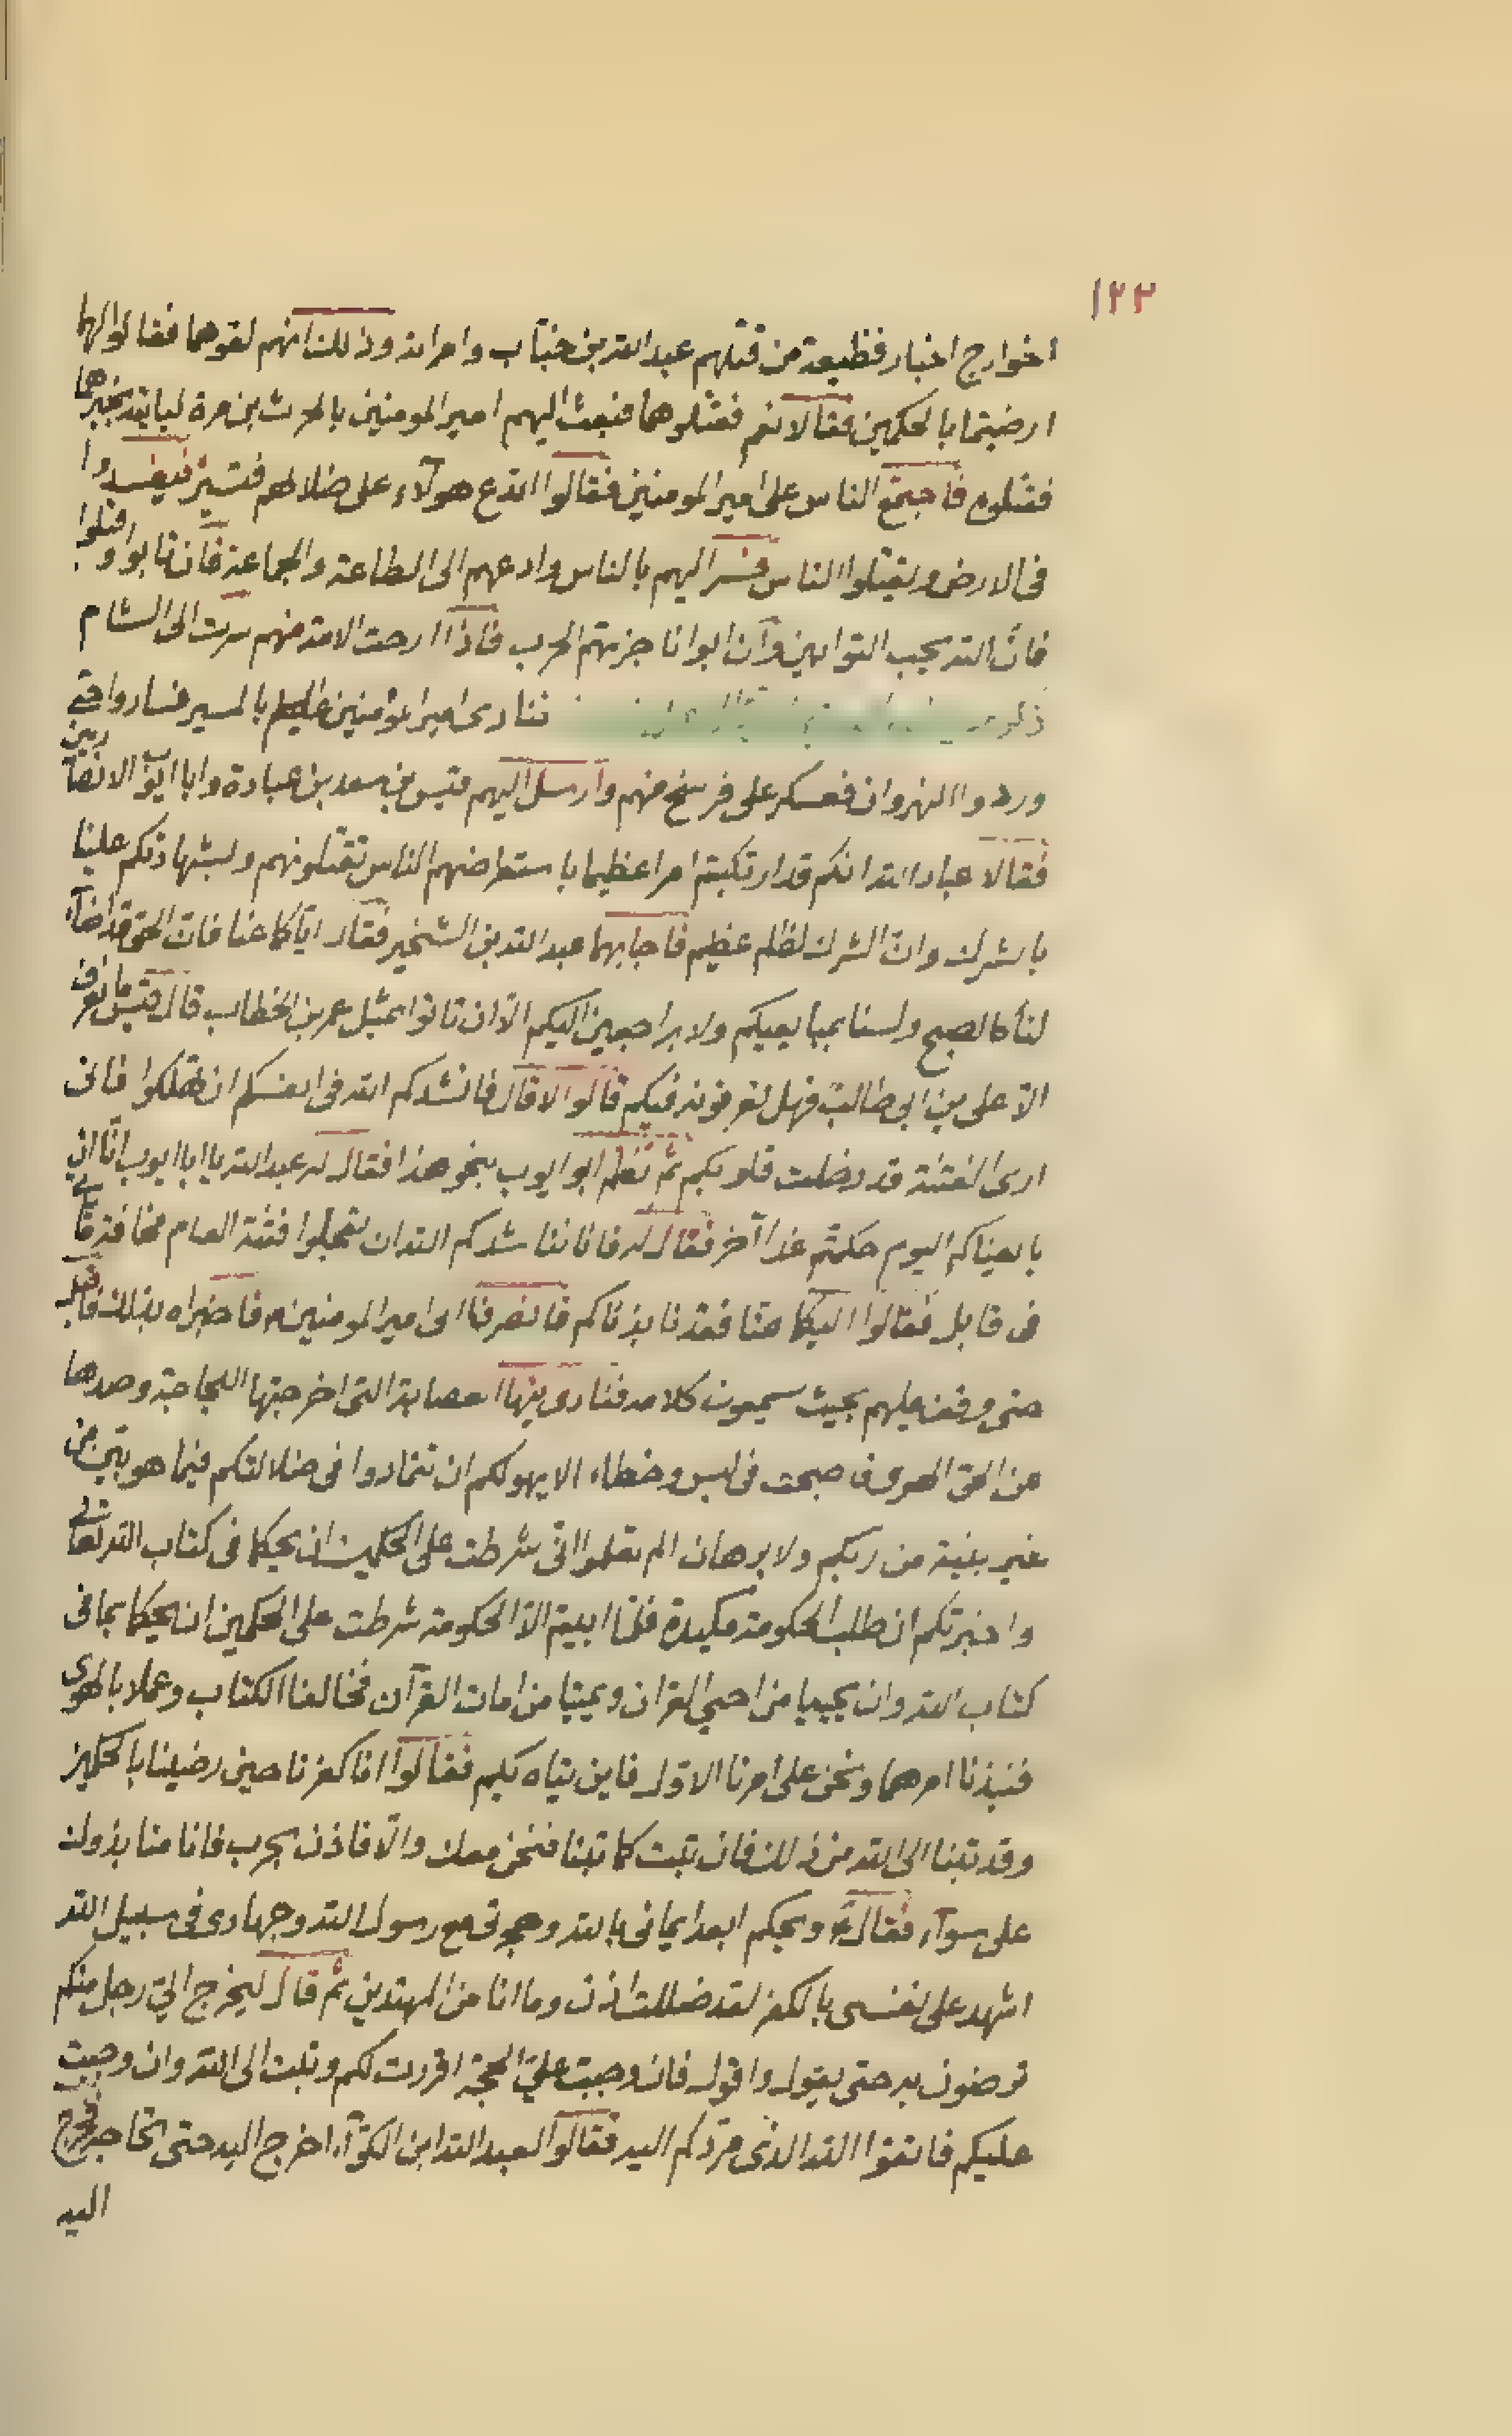 ١٢٣
الخوارج اخبار فظيعة من قتلهم عبد الله بن خباب وامراته وذلك انهم لقوهما فقالوا لهما
ارضيتما بالحكمين فقالا نعم فقتلوهما فبعث اليهم امير المومنين بالحرث بن مرة لياتيه بخبرهما
فقتلوه فاجتمع الناس على امير المومنين فقالوا اتدع هولآء على ضلالهم فتسير فيفسدوا
فى الارض ويقتلوا الناس فسر اليهم بالناس وادعهم الى الطاعة والجماعة فان تابوا وقبلوا
فان الله يحب التوابين وان ابوا ناجزتهم الحرب فاذا ارحت الامة منهم سرت الى الشام
فنادى امير المومنين بالمسير فساروا حتى
وردوا النهروان فعسكر على فرسخ منهم وارسل اليهم قيس بن سعد بن عبادة وابا ايوب الانصارى
فقالا عباد الله انكم قد ارتكبتم امرا عظيما باستعراضهم الناس تقتلونهم وبشهادتكم علينا
بالشرك وان الشرك لظلم عظيم فاجابهما عبد الله بن الشخير فقال اياكما عنا فان الحق قد اضآء
لنا كالصبح ولسنا بمبايعيكم ولا براجعين اليكم الا ان تاتوا بمثل عمر بن الخطاب قال قيس ما نعرف
الا على بن ابى طالب فهل تعرفونه فيكم قالوا لا قال فانشدكم الله فى انفسكم ان تهلكوا فانى
ارى الفتنة قد دخلت قلوبكم ثم تكلم ابو ايوب بنحو هذا فقال له عبد الله يا ابا ايوب انا ان
بايعناكم اليوم حكمتم غدا آخر فقال له فانا نناشدكم الله ان تعجلوا فتنة العام مخافة ما ياتى
فى قابل فقالوا اليكما عنا فقد نابذناكم فانصرفا الى امير المومنين فاخبراه بذلك فاقبل
حتى وقف عليهم بحيث يسمعون كلامه فنادى ايتها العصابة التى اخرجتها اللجاجة وصدها
عن الحق الهوى فاصبحت فى لبس وخطاء الا يهولكم ان تتمادوا فى ضلالتكم فيما هو بتى من
غير بينة من ربكم ولا برهان الم تعلموا انى شرطت على الحكمين ان يحكما فى كتاب الله تعالى
واخبرتكم ان طلب الحكومة مكيدة فلما ابيتم الا الحكومة شرطت على الحكمين ان يحكما بما فى
كتاب الله وان يحييا من احيى القران ويميتا من امات القرآن فخالفا الكتاب وعملا بالهوى
فنبذنا امرهما ونحن على امرنا الاول فاين يتاه بكم فقالوا انا كفرنا حين رضينا بالحكمين
وقد تبنا الى الله من ذلك فان تبت كما تبنا فنحن معك والا فاذن بحرب فانا منابذوك
على سوآء فقال ويحكم ابعد ايمانى بالله وهجرتى مع رسول الله وجهادى فى سبيل الله
اشهد على نفسى بالكفر لقد ضللت اذن وما انا من المهتدين ثم قال ليخرج الى رجل منكم
ترضون به حتى يقول واقول فان وجبت على الحجة اقررت لكم وتبت الى الله وان وجبت
عليكم فاتقوا الله الذى مردكم اليه فقالوا لعبد الله ابن الكوآء اخرج اليه حتى تحاجه فخرج
اليه